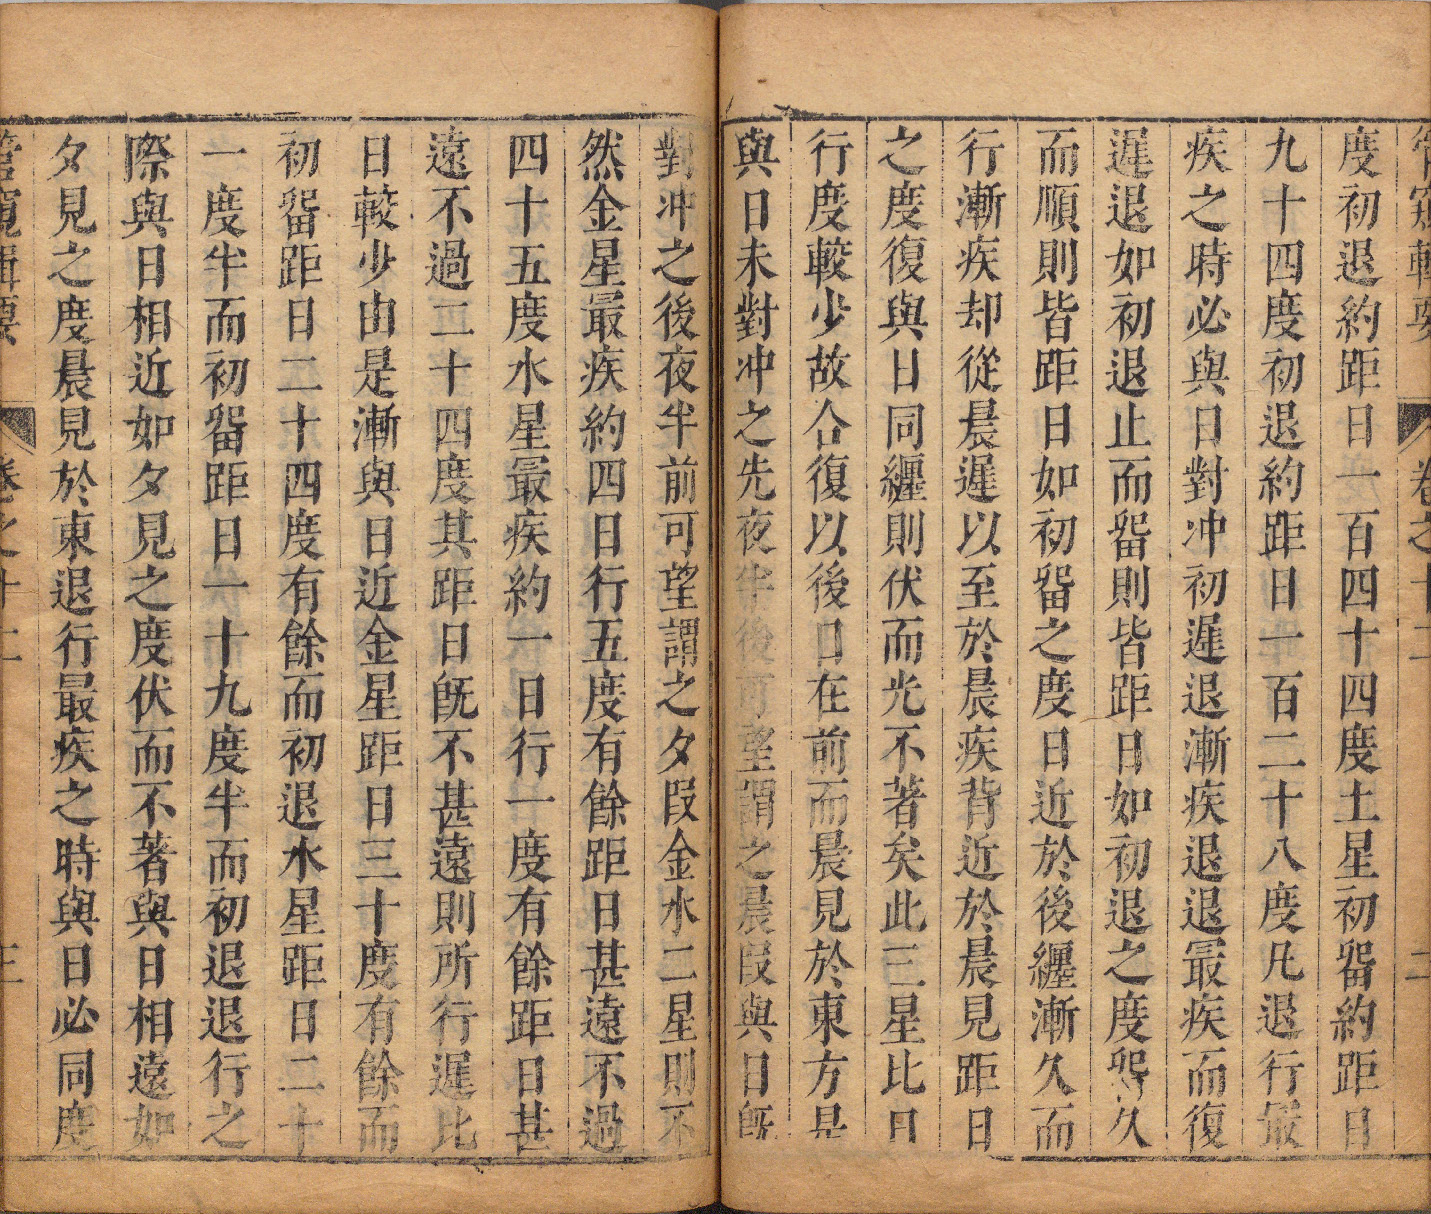 管窺輯要 卷之十二 二
度初退約距日一百四十四度土星初畱約距日
九十四度初退約距日一百二十八度凡退行最
疾之時必與日對冲初遲退漸疾退退最疾而復
遲退如初退止而畱則皆距日如初退之度畱久
而順則皆距日如初畱之度日近於後纏漸久而
行漸疾却從晨遲以至於晨疾背近於晨見距日
之度復與日同纏則伏而光不著矣此三星比日
行度較少故合復以後日在前而晨見於東方是
與日未對冲之先夜半後可望謂之晨段與日旣
對冲之後夜半前可望謂之夕段金水二星則不
然金星最疾約四日行五度有餘距日甚遠不過
四十五度水星最疾約一日行一度有餘距日甚
遠不過二十四度其距日旣不甚遠則所行遲比
日較少由是漸與日近金星距日三十度有餘而
初畱距日二十四度有餘而初退水星距日二十
一度半而初畱距日一十九度半而初退退行之
際與日相近如夕見之度伏而不著與日相遠如
夕見之度晨見於東退行最疾之時與日必同度
管窺輯要 卷之十二 三